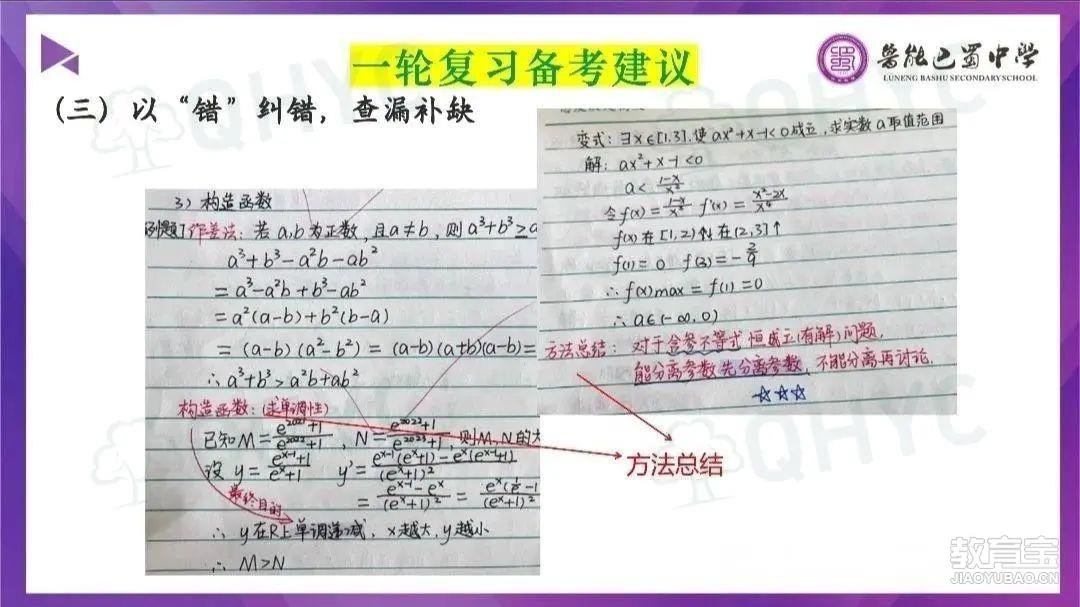 一轮复习备考建议
鲁能巴蜀中学
LUNENG BASHU SECONDARY SCHOOL
(三) 以“错”纠错，查漏补缺
3) 构造函数
例题1 作差法: 若 a,b 为正数, 且 a≠b, 则 a³+b³≥a
a³+b³-a²b-ab²
=a³-a²b+b³-ab²
=a²(a-b)+b²(b-a)
=(a-b)(a²-b²)=(a-b)(a+b)(a-b)=
∴a³+b³>a²b+ab²
构造函数: (求单调性)
已知M=(e^2021+1)/(e^2022+1), N=(e^2022+1)/(e^2023+1), 则M,N的大
设 y=(e^(x-1)+1)/(e^x+1) y'=(e^(x-1)(e^x+1)-e^x(e^(x-1)+1))/(e^x+1)²
=(e^(x-1)-e^x)/(e^x+1)²=e^x(1/e-1
(e^x+1)²
最终目的
∴ y在R上单调递减, x越大, y越小
∴ M>N
变式: ∃x∈[1,3], 使 ax²+x-1<0成立, 求实数a取值范围
解: ax²+x-1<0
a<(1-x)/x²
令f(x)=(1-x)/x² f'(x)=(x²-2x)/x⁴
f(x)在[1,2)↓ 在(2,3]↑
f(1)=0 f(3)=-2/9
∴f(x)max=f(1)=0
∴a∈(-∞,0)
方法总结: 对于含参不等式 恒成立(有解)问题,
能分离参数先分离参数, 不能分离再讨论.
☆☆☆
方法总结
QHYC
QHYC
QHYC
教育宝
JIAOYUBAO.CN